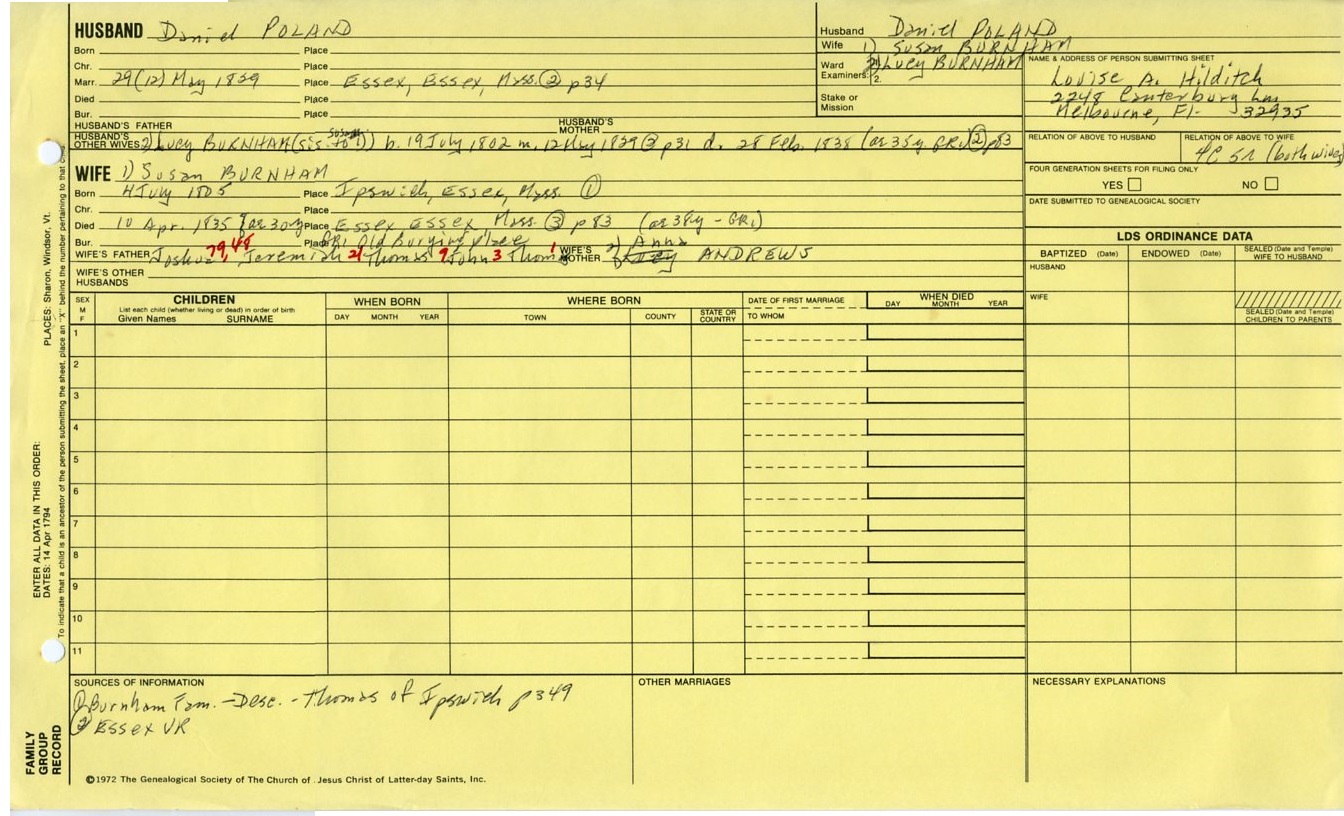 HUSBAND Daniel POLAND
Born Place
Chr. Place
Marr. 29(12) May 1829 Place Essex, Essex, Mass. ② p34
Died Place
Bur. Place
HUSBAND'S FATHER HUSBAND'S MOTHER
HUSBAND'S OTHER WIVES 2) Lucy BURNHAM (sis. to 1)) b. 19 July 1802 m. 12 May 1829 ③ p31 d. 28 Feb. 1838 (ae 35y GR1) ② p83
Susan
Husband Daniel POLAND
Wife 1) Susan BURNHAM
Ward 2) Lucy BURNHAM
Examiners: 2.
Stake or Mission
NAME & ADDRESS OF PERSON SUBMITTING SHEET
Louise A. Hilditch
2248 Canterbury Ln
Melbourne, Fl- 32935
RELATION OF ABOVE TO HUSBAND RELATION OF ABOVE TO WIFE
4C 5R (both wives)
FOUR GENERATION SHEETS FOR FILING ONLY
YES NO
DATE SUBMITTED TO GENEALOGICAL SOCIETY
WIFE 1) Susan BURNHAM
Born 4 July 1805 Place Ipswich, Essex, Mass. ①
Chr. Place
Died 10 Apr. 1835 (ae 30y Place Essex Essex Mass. ③ p83 (ae 38y - GR1)
Bur. Place GR1 Old Burying place
WIFE'S FATHER Joshua 79,48, Jeremiah 21 Thomas 9 John 3 Thomas 1 WIFE'S MOTHER 2) Anna ANDREWS
WIFE'S OTHER HUSBANDS
LDS ORDINANCE DATA
BAPTIZED (Date) ENDOWED (Date) SEALED (Date and Temple) WIFE TO HUSBAND
HUSBAND
WIFE
SEALED (Date and Temple) CHILDREN TO PARENTS
SEX M F
CHILDREN
List each child (whether living or dead) in order of birth
Given Names SURNAME
WHEN BORN
DAY MONTH YEAR
WHERE BORN
TOWN COUNTY STATE OR COUNTRY
DATE OF FIRST MARRIAGE
TO WHOM
WHEN DIED
DAY MONTH YEAR
1
2
3
4
5
6
7
8
9
10
11
SOURCES OF INFORMATION
① Burnham Fam. - Desc. - Thomas of Ipswich p349
② Essex VR
OTHER MARRIAGES
NECESSARY EXPLANATIONS
©1972 The Genealogical Society of The Church of Jesus Christ of Latter-day Saints, Inc.
FAMILY GROUP RECORD
ENTER ALL DATA IN THIS ORDER:
DATES: 14 Apr 1794
PLACES: Sharon, Windsor, Vt.
To indicate that a child is an ancestor of the person submitting the sheet, place an "X" behind the number pertaining to that